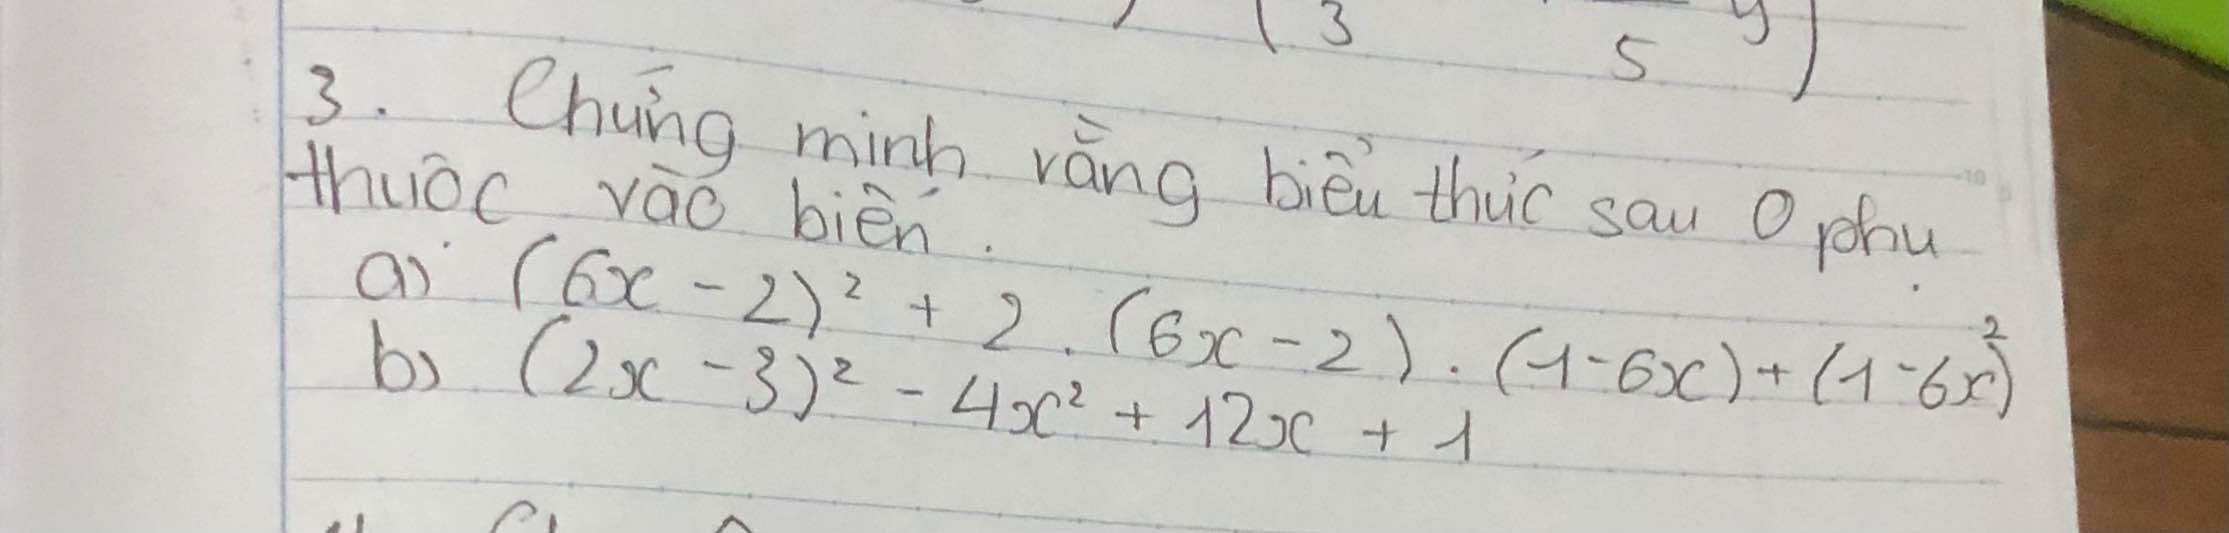 ( 3 5 y )
3. Chứng minh rằng biểu thức sau 0 phụ
thuộc vào biến.
a) (6x - 2)² + 2. (6x - 2). (1 - 6x) + (1 - 6x)²
b) (2x - 3)² - 4x² + 12x + 1